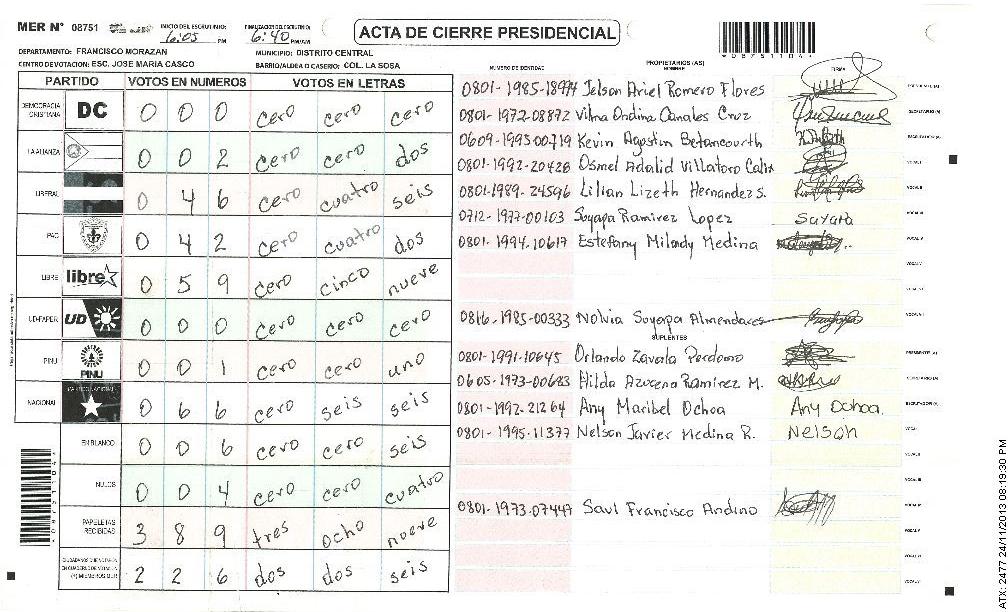 MER N° 08751 INICIO DEL ESCRUTINIO: 6:05 PM FINALIZACION DEL ESCRUTINIO: 6:40 PM/AM ACTA DE CIERRE PRESIDENCIAL
DEPARTAMENTO: FRANCISCO MORAZAN MUNICIPIO: DISTRITO CENTRAL
CENTRO DE VOTACION: ESC. JOSE MARIA CASCO BARRIO/ALDEA O CASERIO: COL. LA SOSA
PARTIDO VOTOS EN NUMEROS VOTOS EN LETRAS
DEMOCRACIA CRISTIANA DC 0 0 0 cero cero cero
LA ALIANZA 0 0 2 cero cero dos
LIBERAL 0 4 6 cero cuatro seis
PAC 0 4 2 cero cuatro dos
LIBRE libre 0 5 9 cero cinco nueve
UD-FAPER UD 0 0 0 cero cero cero
PINU PINU 0 0 1 cero cero uno
NACIONAL PARTIDO NACIONAL 0 6 6 cero seis seis
EN BLANCO 0 0 6 cero cero seis
NULOS 0 0 4 cero cero cuatro
PAPELETAS RECIBIDAS 3 8 9 tres ocho nueve
CIUDADANOS QUE VOTARON EN CUADERNO DE VOTACION (+) MIEMBROS MER 2 2 6 dos dos seis
NUMERO DE IDENTIDAD PROPIETARIOS (AS) NOMBRE FIRMA
Jelson Ariel Romero Flores PRESIDENTE (A)
0801-1972-08872 Vilma Ondina Canales Cruz SECRETARIO (A)
0609-1993-00719 Kevin Agustin Betancourth ESCRUTADOR (A)
0801-1992-20428 Osmel Adalid Villatoro Calix VOCAL I
0801-1989-24596 Lilian Lizeth Hernandez S. VOCAL II
0712-1977-00103 Soyapa Ramirez Lopez VOCAL III
0801-1994-10617 Estefany Milady Medina VOCAL IV
VOCAL V
0816-1985-00333 Nolvia Soyapa Almendares
SUPLENTES
0801-1991-10645 Orlando Zavala Perdomo PRESIDENTE (A)
Hilda Azucena Ramirez M. SECRETARIO (A)
0801-1992-21264 Any Maribel Ochoa Any Ochoa. ESCRUTADOR (A)
0801-1995-11377 Nelson Javier Medina R. Nelson VOCAL I
VOCAL II
0801-1973-07447 Saul Francisco Andino
VOCAL V
ATX: 2477 24/11/2013 08:19:30 PM